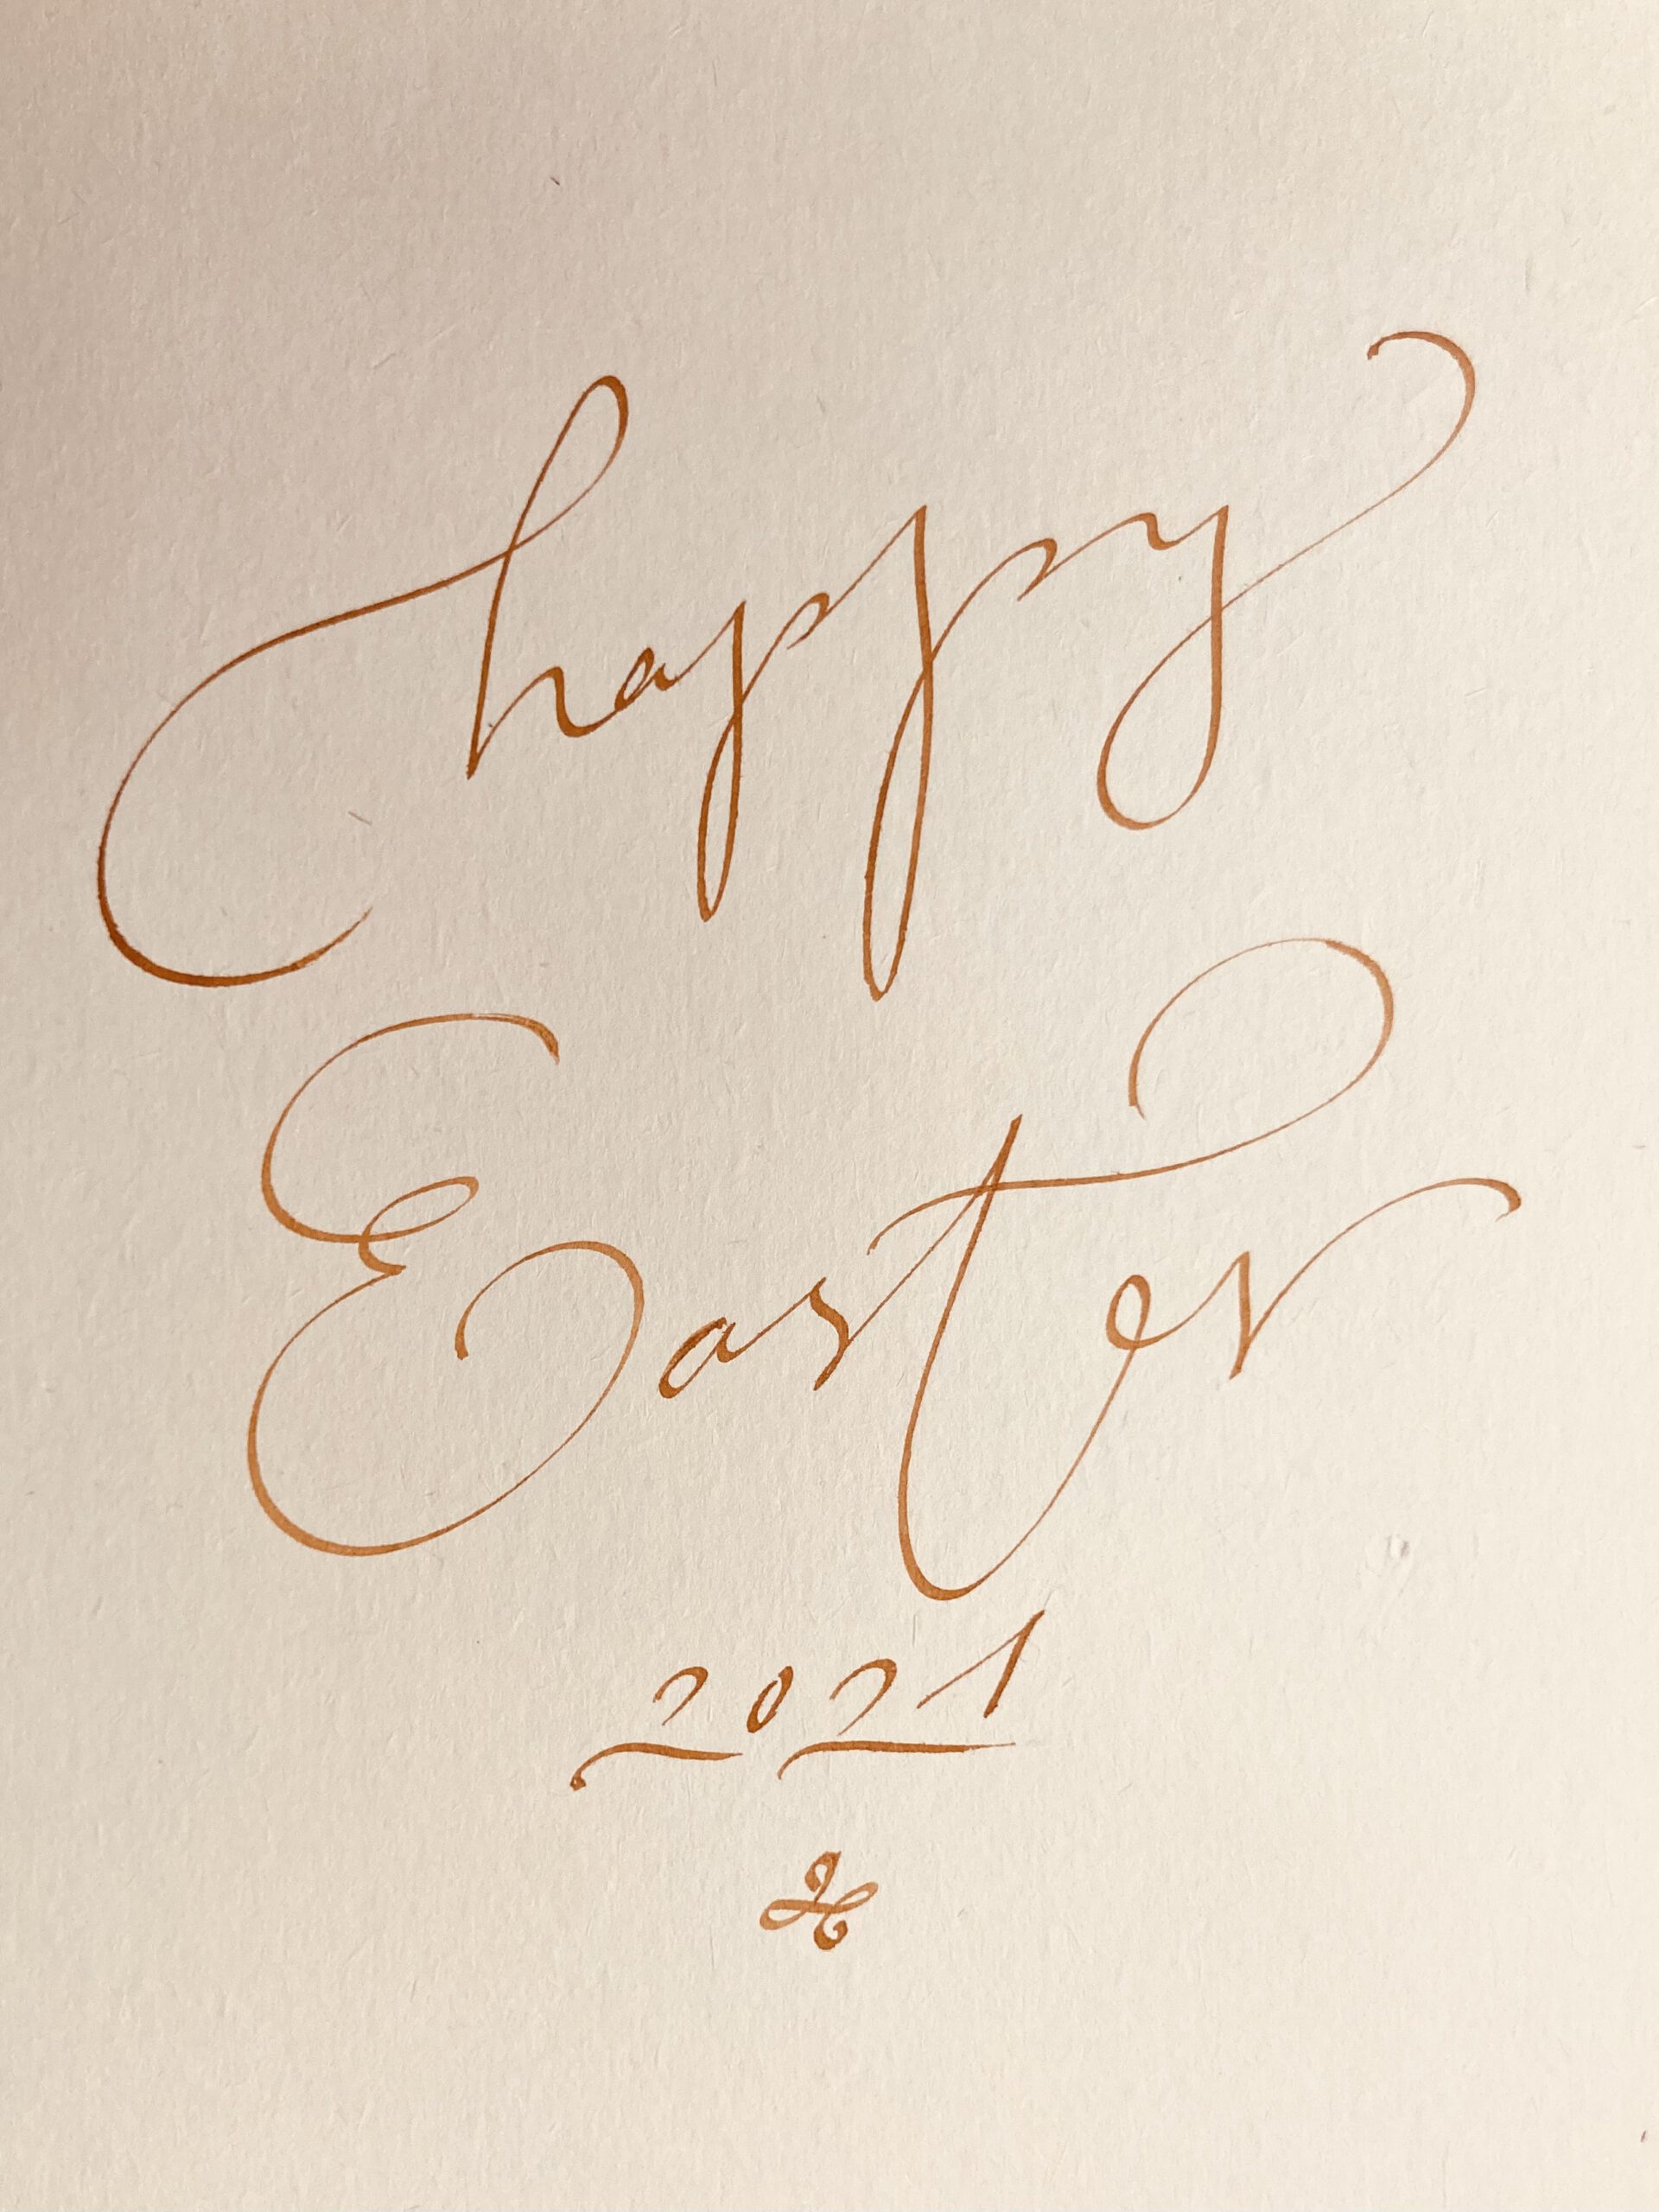 happy
Easter
2021